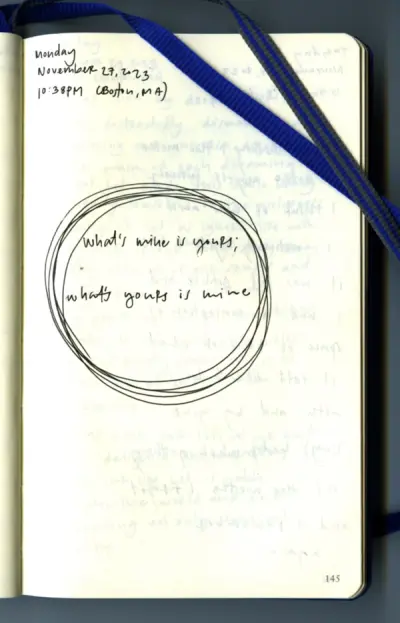 Monday
November 27, 2023
10:38PM (Boston, MA)
what's mine is yours;
what's yours is mine
145